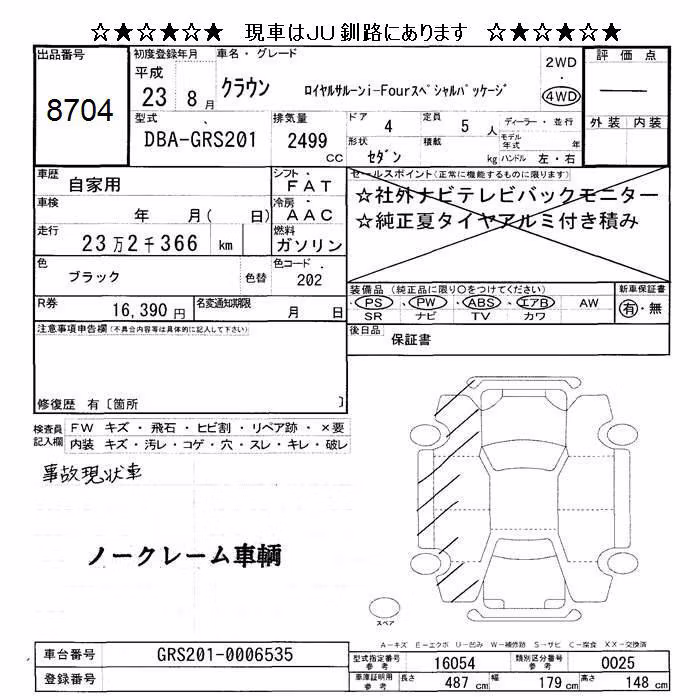 ☆★☆★☆★ 現車はJU釧路にあります ☆★☆★☆★
出品番号
8704
初度登録年月
平成
23 8 月
車名・グレード
クラウン ロイヤルサルーンi-Fourスペシャルパッケージ
2WD
・
4WD
評価点
外装 内装
型式
DBA-GRS201
排気量
2499
cc
ドア 4
定員 5 人
形状 セダン
積載 kg
ディーラー・並行
モデル年式 年
ハンドル 左・右
車歴
自家用
シフト
FAT
車検
年 月( 日)
冷房
AAC
走行
23万2千366 km
燃料
ガソリン
色
ブラック
色替
色コード
202
R券
16,390 円
名変通知期限
月 日
セールスポイント(正常に機能するものに限ります)
☆社外ナビテレビバックモニター
☆純正夏タイヤアルミ付き積み
装備品(純正品に限り○をつけてください)
PS、PW、ABS、エアB、 AW
SR ナビ TV カワ
新車保証書
有・無
後日品
保証書
注意事項申告欄(不具合内容等は具体的に記入して下さい)
修復歴 有〔箇所 〕
検査員記入欄
FW キズ・飛石・ヒビ割・リペア跡・×要
内装 キズ・汚レ・コゲ・穴・スレ・キレ・破レ
事故現状車
ノークレーム車輌
スペア
A-キズ E-エクボ U-凹み W-補修跡 S-サビ C-腐食 XX-交換済
車台番号
GRS201-0006535
登録番号
型式指定番号参考
16054
類別区分番号参考
0025
車庫証明用参考
長さ 487 cm 幅 179 cm 高さ 148 cm